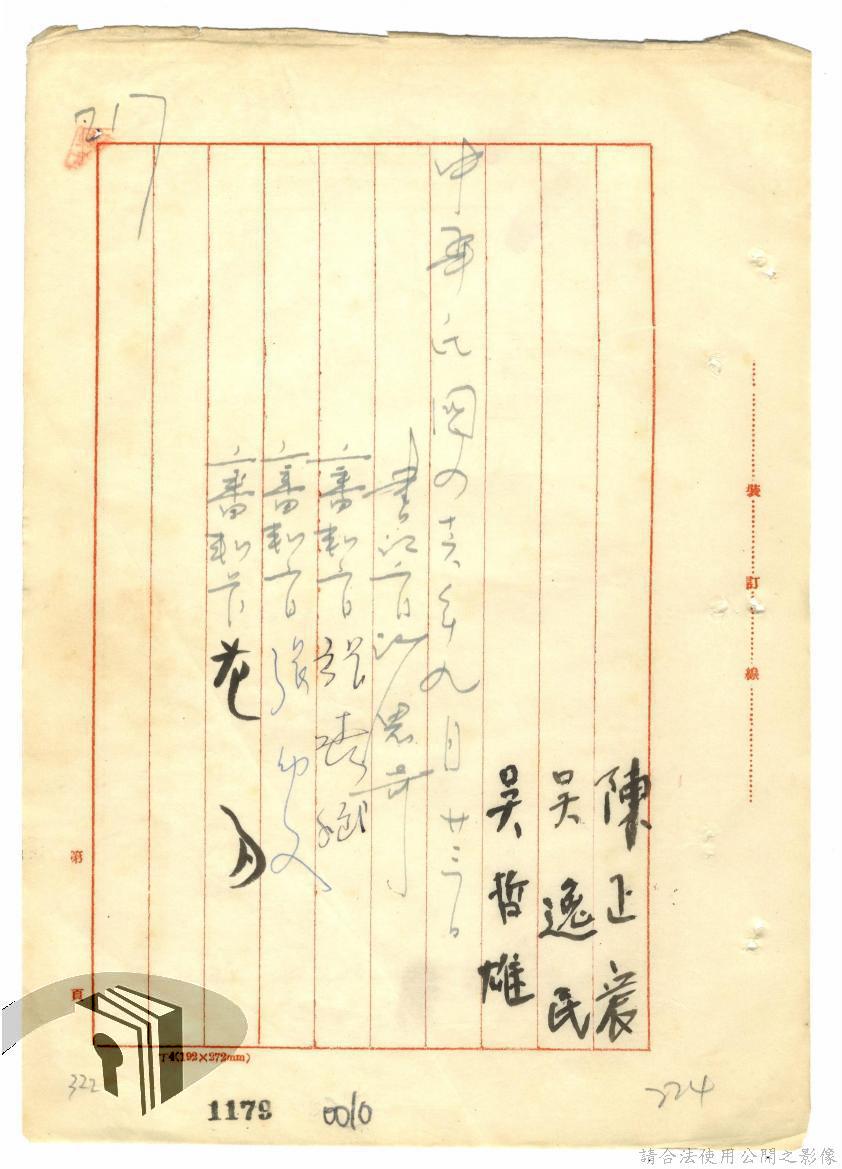 217
陳正宸
吳逸民
吳哲雄
中華民國四十六年九月廿三日
書記官
審判官
審判官 張幼文
審判官
裝
訂
線
第
頁
丁4(192×272mm)
322
1179
0010
224
請合法使用公開之影像